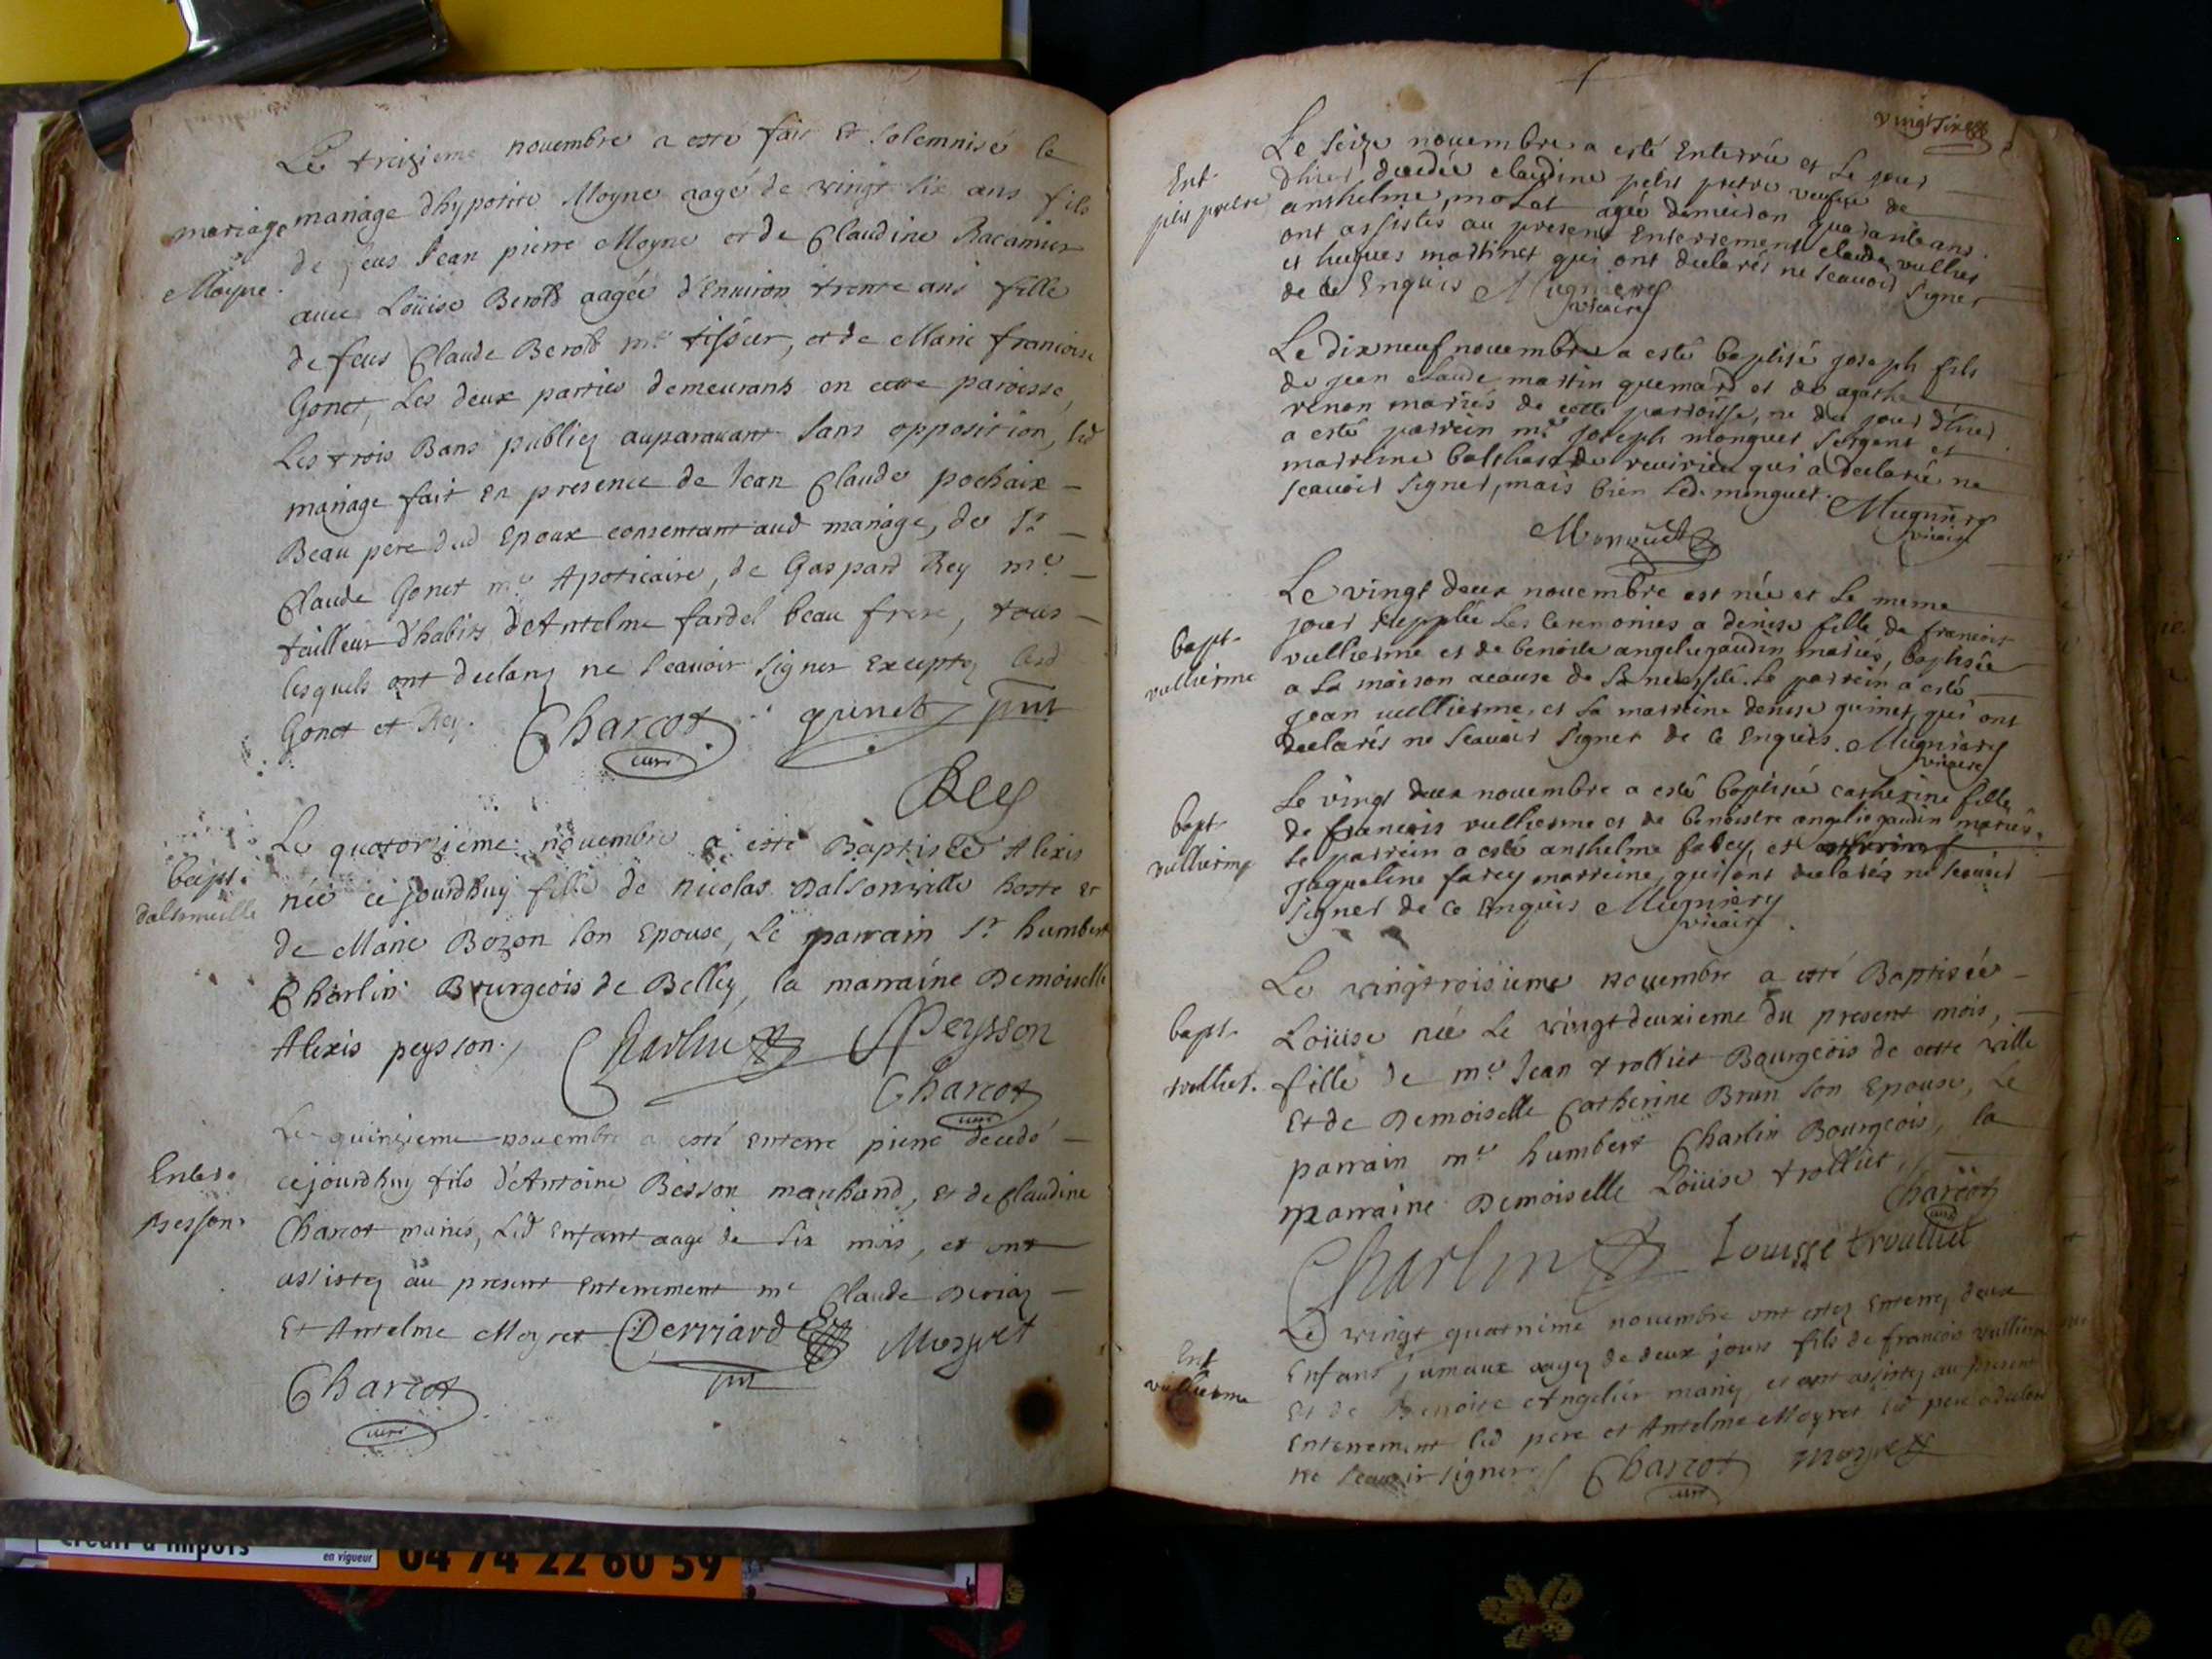 Le treizieme novembre a esté fait et solemnisé le
mariage
mariage d'hypolite Moyne aagé de vingt six ans fils
Moyne.
de feus Jean pierre Moyne et de Claudine Racamier
avec Loüise Berold aagée d'Environ trente ans fille
de feus Claude Berold me tisseur, et de Marie francoise
Gonet, Les deux parties demeurants en cette paroisse,
Les trois Bans publiez auparavant sans opposition, led
mariage fait En presence de Jean Claude pochaix
Beau pere dud Epoux consentant aud mariage, de Sr
Claude Gonet me Apoticaire, de Gaspard Rey me
tailleur d'habits d'Antelme fardel beau frere, tous
lesquels ont declarez ne scavoir signer Exceptez lesd
Gonet et Rey.
Charcot
curé
Rey
Le quatorzieme novembre a esté Baptisée Alexis
bapt.
née ce jourdhuy fille de nicolas Dalsonville hoste et
de Marie Bozon son Epouse, Le parrain Sr humbert
Charlin Bourgeois de Belley, la marraine Demoiselle
Alexis peysson.
Charlin
Peysson
Charcot
curé
Le quinzieme novembre a esté enterré pierre decedé
Enter.
Besson.
cejourdhuy fils d'Antoine Besson marchand, et de Claudine
Charcot mariés, Led Enfant aagé de six mois, et ont
assistez au present Enterrement me Claude
Et Antelme Moyret
Derriard
Moyret
Charcot
curé
vingt six
Le seize novembre a esté Enterrée et le jour
Ent.
petit pretre
d'hier decedée claudine petit pretre veufve de
anthelme molat agée d'environ quarante ans.
ont assistés au present Enterrement claude vullier
et hugues martinet qui ont declarés ne scavoir signer
de ce Enquis Mugniery
vicaire
Le dixneuf novembre a esté baptisé joseph fils
de jean claude martin quemard et de agathe
renon mariés de cette parroisse, ne du jour d'hier
a esté parrein mre joseph monguet sergent et
marreine balthazarde revirieu qui a declarée ne
scavoir signer, mais bien led. monguet.
Mugniery
vicaire
Monguet
Le vingt deux novembre est née et le meme
bapt.
vullierme
jour supplée les ceremonies a denise fille de francois
vullierme et de benoite angeliegaudin mariés, baptisée
a la maison acause de sa necessité. le parrein a esté
jean vullierme, et la marreine denise guinet, qui ont
declarés ne scavoir signer de ce Enquis. Mugniery
vicaire
Le vingt deux novembre a esté baptisée catherine fille
bapt.
vullierme
de francois vullierme et de benoistre angeliegaudin mariés.
le parrein a esté anthelme farcy, et
jaqueline farcy marreine, qui ont declarés ne scavoir
signer de ce Enquis Mugniery
vicaire
Le vingtroisieme novembre a esté Baptisée
bapt.
trolliet.
Loüise née Le vingtdeuxieme du present mois,
fille de me Jean trolliet Bourgeois de cette ville
Et de Demoiselle Catherine Brun son Epouse, Le
parrain me humbert Charlin Bourgeois, la
marraine Demoiselle Loüise trolliet.
Charcot
curé
Charlin
Louisse trouilliet
Le vingt quatrieme novembre ont estez Enterrez deux
Ent.
vullierme
Enfans jumeaux aagez de deux jours fils de francois vullierme
Et de Benoite Angelier mariez, et ont assistez au present
Enterrement led pere et Antelme Moyret led pere a declaré
ne scavoir signer
Charcot
curé
Moyret
credit d'impôts
en vigueur
04 74 22 60 59